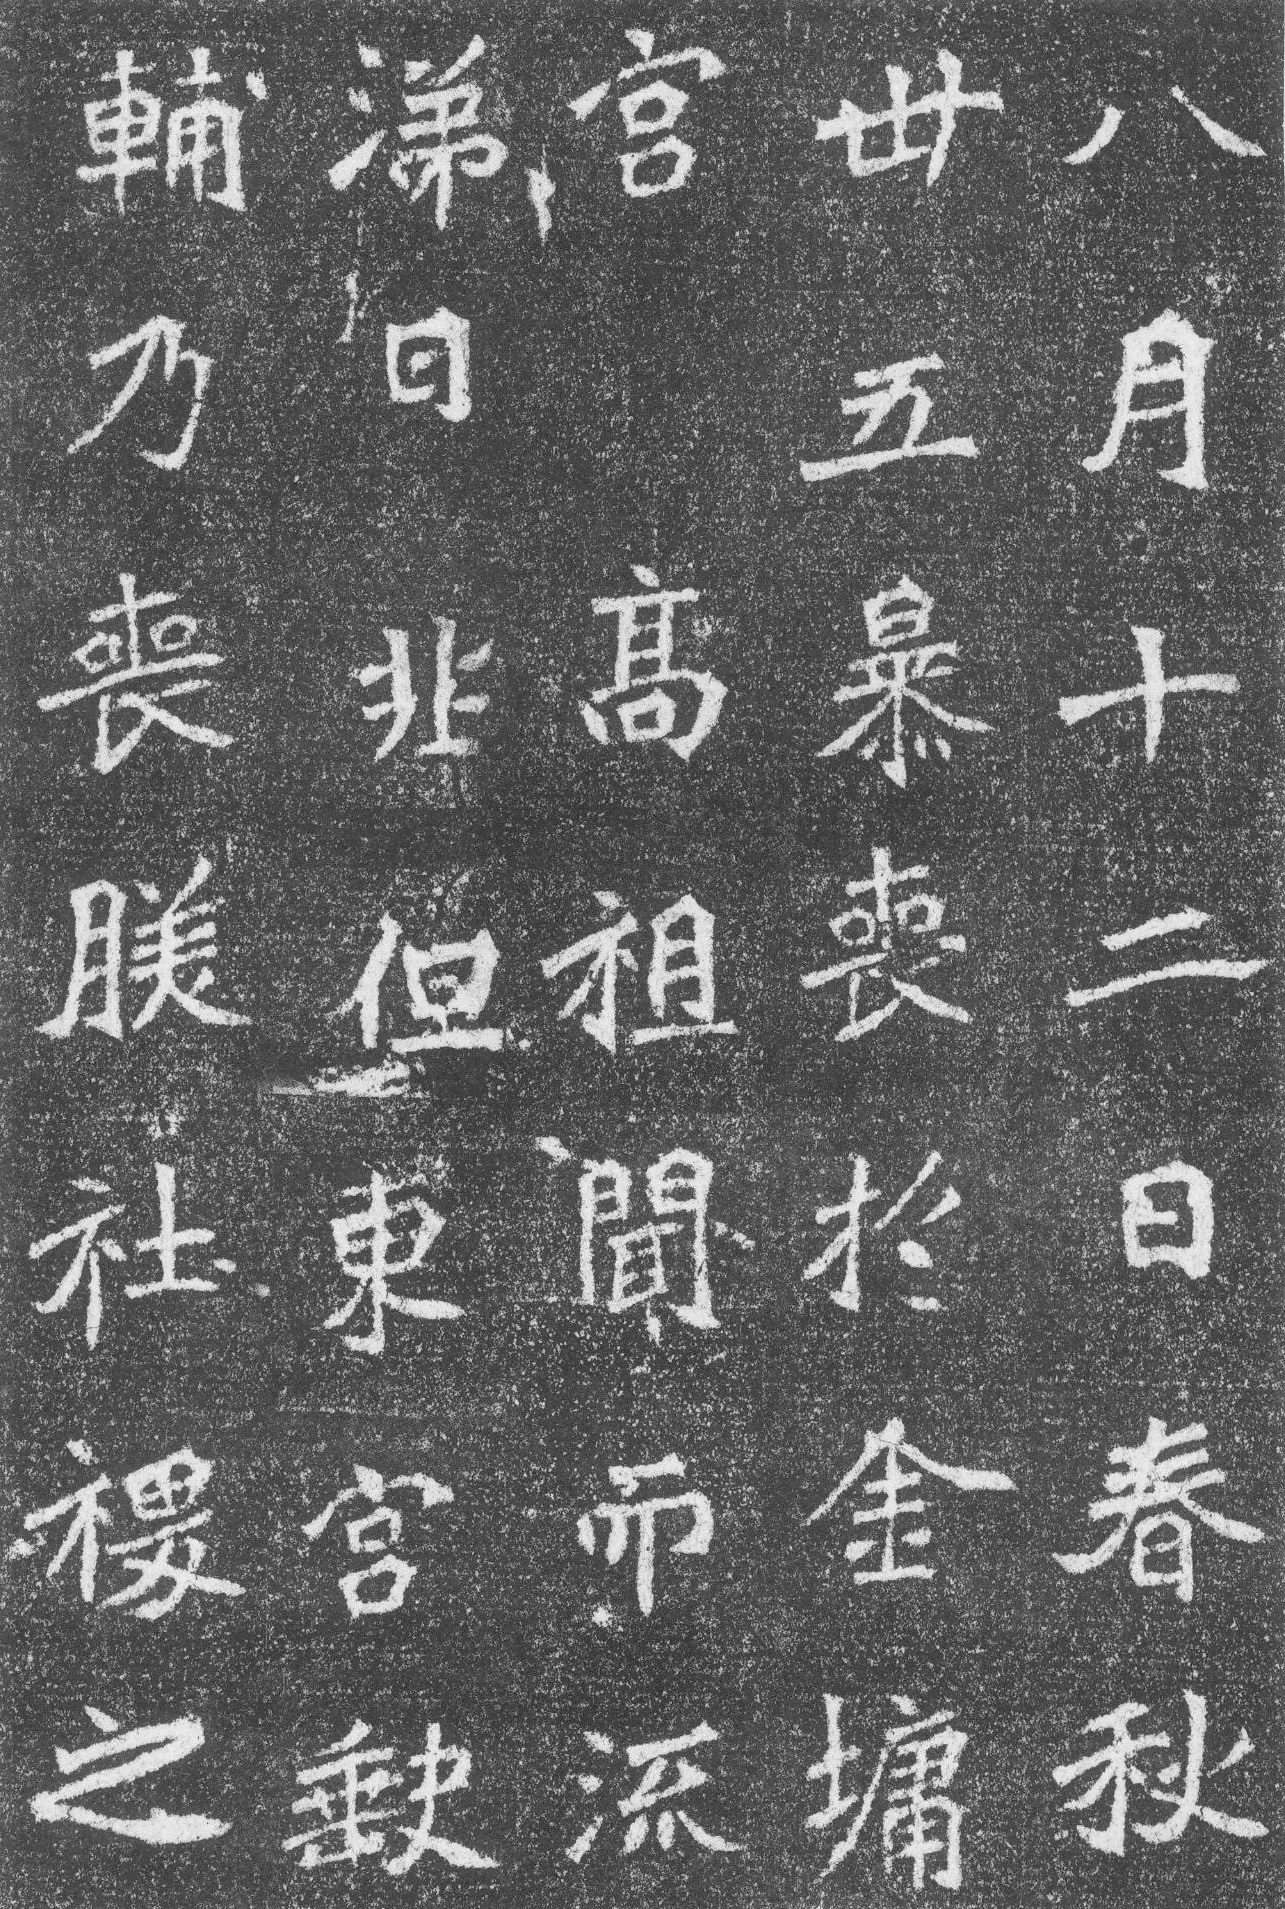 八月十二日春秋
丗五暴喪於金墉
宮 高祖聞而流
涕曰非但東宮缺
輔乃喪朕社禝之